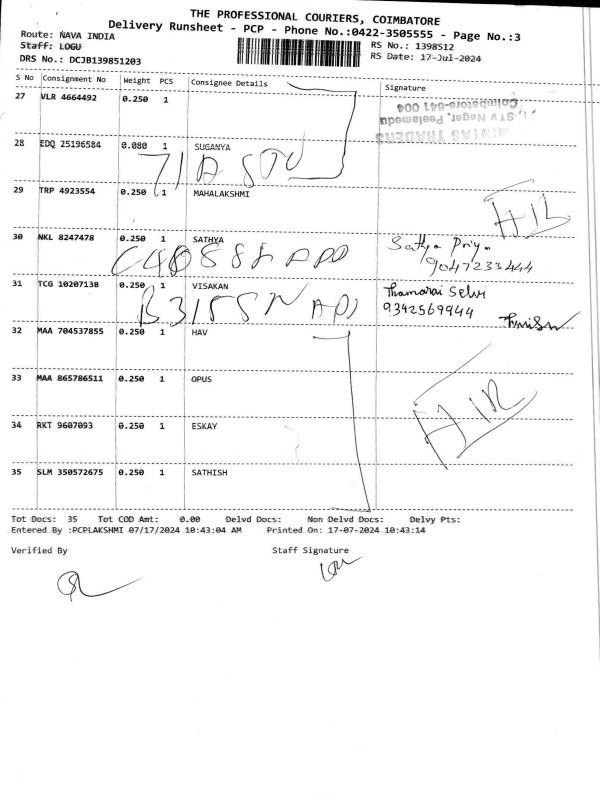 THE PROFESSIONAL COURIERS, COIMBATORE
Delivery Runsheet - PCP - Phone No.:0422-3505555 - Page No.:3
Route: NAVA INDIA
RS No.: 1398512
Staff: LOGU
RS Date: 17-Jul-2024
DRS No.: DCJB139851203
S No Consignment No Weight PCS Consignee Details Signature
27 VLR 4664492 0.250 1
Coimbatore-641 004
Nagar, Peelamedu
TRADERS
28 EDQ 25196584 0.080 1 SUGANYA
29 TRP 4923554 0.250 1 MAHALAKSHMI
30 NKL 8247478 0.250 1 SATHYA
Sathya Priya
9047233444
31 TCG 10207138 0.250 1 VISAKAN
Thamarai Selvi
9342569944
32 MAA 704537855 0.250 1 HAV
33 MAA 865786511 0.250 1 OPUS
34 RKT 9607093 0.250 1 ESKAY
35 SLM 350572675 0.250 1 SATHISH
Tot Docs: 35 Tot COD Amt: 0.00 Delvd Docs: Non Delvd Docs: Delvy Pts:
Entered By :PCPLAKSHMI 07/17/2024 10:43:04 AM Printed On: 17-07-2024 10:43:14
Verified By Staff Signature